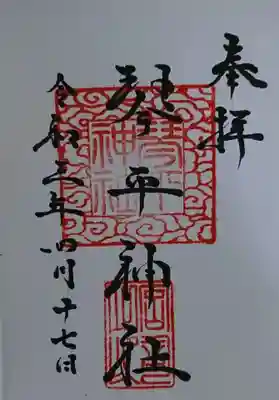 奉拝
琴平神社
令和三年四月十七日
琴平
神社